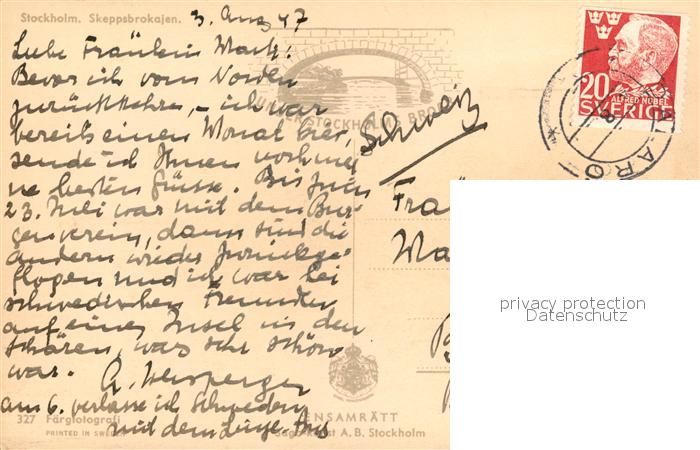 Stockholm. Skeppsbrokajen.
3. Aug 47
Liebe Fräulein
Bevor ich vom Norden
zurückkehre, – ich war
bereits einen Monat hier,
sende ich Ihnen noch mei
ne besten Grüsse. Bis zum
23. Juli war mit dem Bur
genverein, dann sind die
andern wieder zurückge-
flogen und ich war bei
schwedischen Freunden
auf einer Insel in den
Schären, was sehr schön
war.
am 6. verlasse ich Schweden
mit dem Zuge.
STOCKHOLMS BRO
Schweiz
20
ALFRED NOBEL
SVERIGE
Frä
Ma
privacy protection
Datenschutz
327 Färgfotografi
PRINTED IN SWEDEN
ENSAMRÄTT
A.B. Stockholm